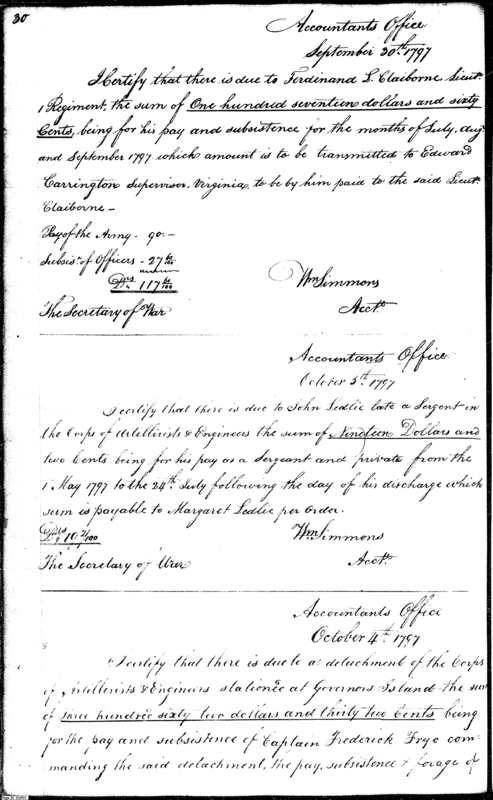 30
Accountants Office
September 30th. 1797
I Certify that there is due to Ferdinand L. Claiborne Lieut.
1 Regiment, the sum of One hundred seventeen dollars and sixty
Cents, being for his pay and subsistence for the months of July, Aug
and September 1797 which amount is to be transmitted to Edward
Carrington Supervisor, Virginia, to be by him paid to the said Lieut.
Claiborne -
Pay of the Army - 90. -
Subsis. of Officers - 27 60/100
Drs 117 60/100
Wm Simmons
Acct.
The Secretary of War
Accountants Office
October 3th. 1797
I certify that there is due to John Ledlie late a Sergent in
the Corps of Artillirists & Engineers the sum of Nineteen Dollars and
two Cents being for his pay as a Sergeant and private from the
1 May 1797 to the 24th. July following the day of his discharge which
sum is payable to Margaret Ledlie per Order.
Dlls 19 2/100
Wm Simmons
Acct.
The Secretary of War
Accountants Office
October 4th. 1797
I certify that there is due to a detachment of the Corps
of Artillirists & Engineers stationed at Governors Island the sum
of three hundred sixty two dollars and thirty two Cents being
for the pay and subsistence of Captain Frederick Frye com-
manding the said detachment, the pay, subsistence & forage of